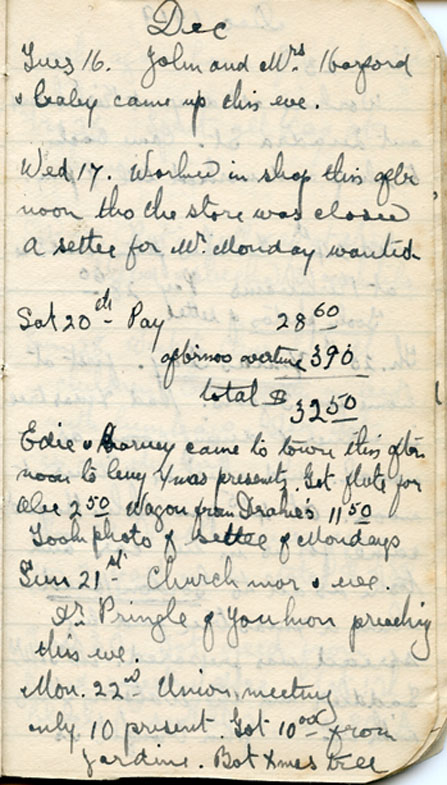 Dec
Tues 16. John and Mrs
& baby came up this eve.
Wed 17. Worked in shop this after
noon tho the store was closed
A settee for Mr. Monday wanted
Sat 20th Pay 28 60
overtime 390
total $ 32 50
Edie & Harvey came to town this after
noon to buy Xmas presents. Got flute for
2 50 Wagon from Drake's 11 50
Took photo of settee of Mondays
Sun 21st Church mor & eve.
Dr. Pringle of preaching
this eve.
Mon. 22nd Union meeting
only 10 present. Got 10 00 from
Jardine. Bot Xmas tree